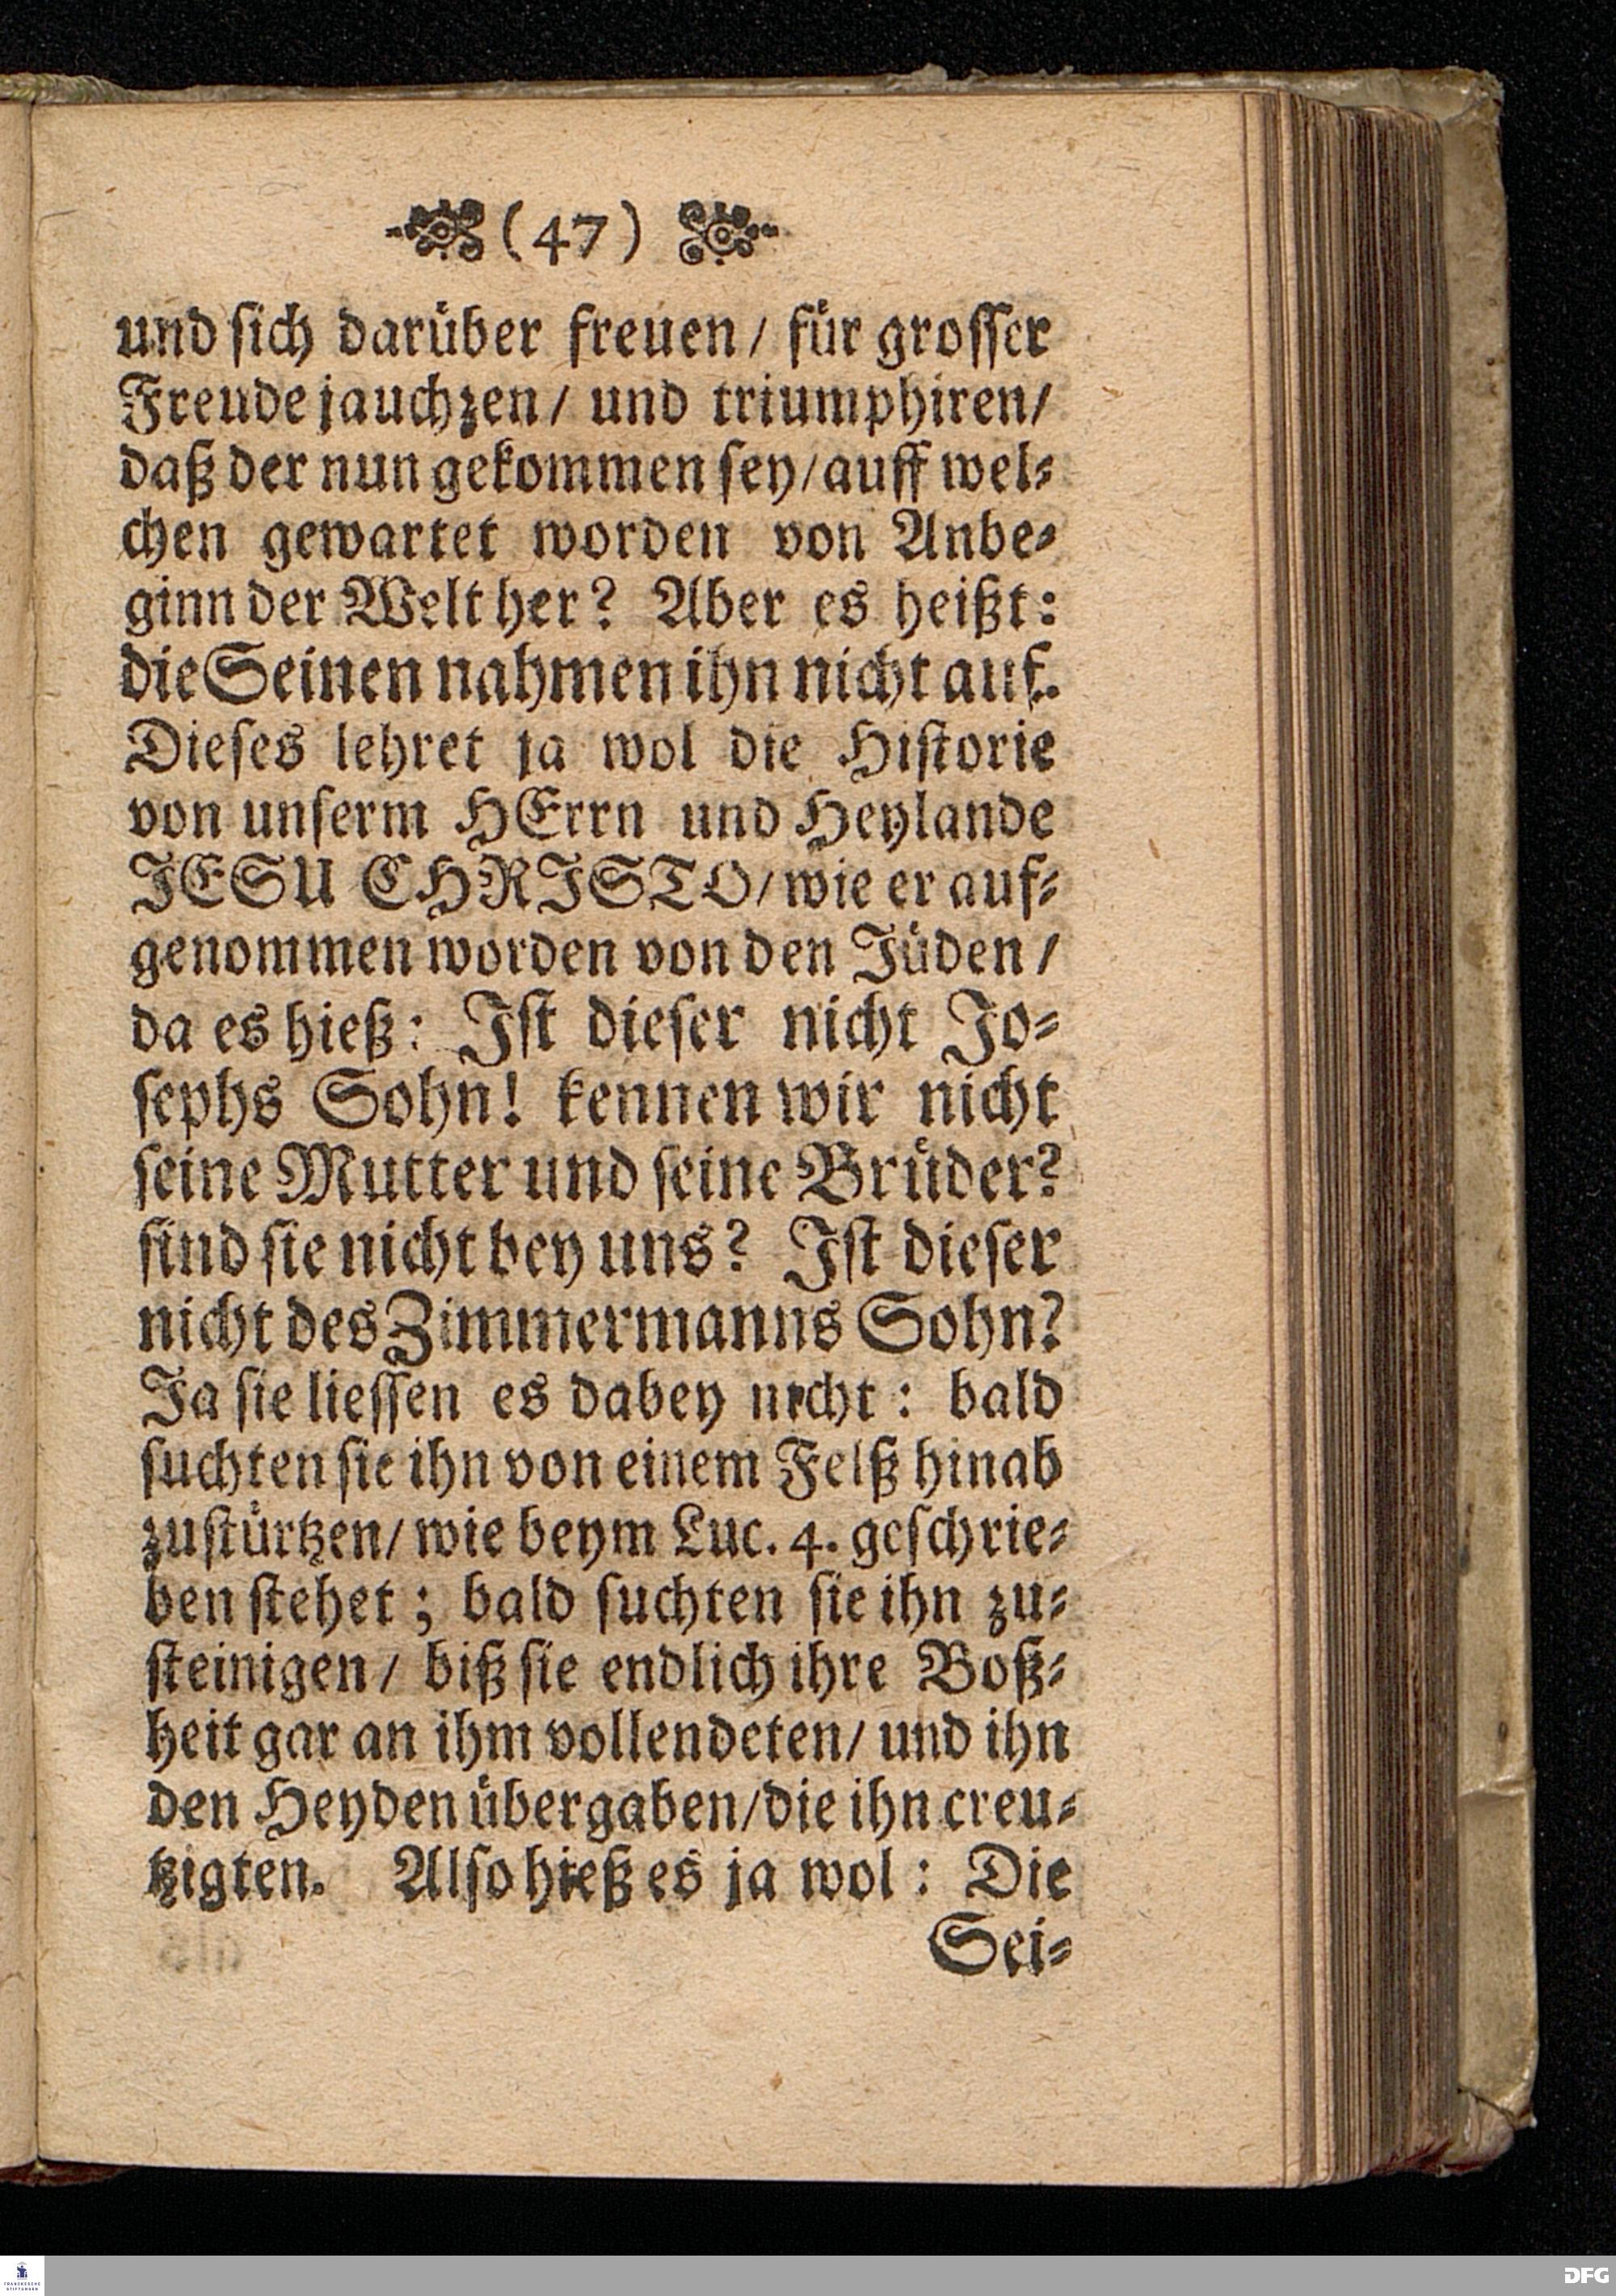 (47)
und sich darüber freuen/ für grosser
Freude jauchzen/ und triumphiren/
daß der nun gekommen sey/ auff wel-
chen gewartet worden von Anbe-
ginn der Welt her? Aber es heißt:
die Seinen nahmen ihn nicht auf.
Dieses lehret ja wol die Historie
von unserm HErrn und Heylande
JESU CHRISTO/ wie er auf-
genommen worden von den Jüden/
da es hieß: Ist dieser nicht Jo-
sephs Sohn! kennen wir nicht
seine Mutter und seine Brüder?
sind sie nicht bey uns? Ist dieser
nicht des Zimmermanns Sohn?
Ja sie liessen es dabey nicht: bald
suchten sie ihn von einem Felß hinab
zustürtzen/ wie beym Luc. 4. geschrie-
ben stehet; bald suchten sie ihn zu-
steinigen/ biß sie endlich ihre Boß-
heit gar an ihm vollendeten/ und ihn
den Heyden übergaben/ die ihn creu-
tzigten. Also hieß es ja wol: Die
Sei-
FRANCKESCHE
STIFTUNGEN
DFG